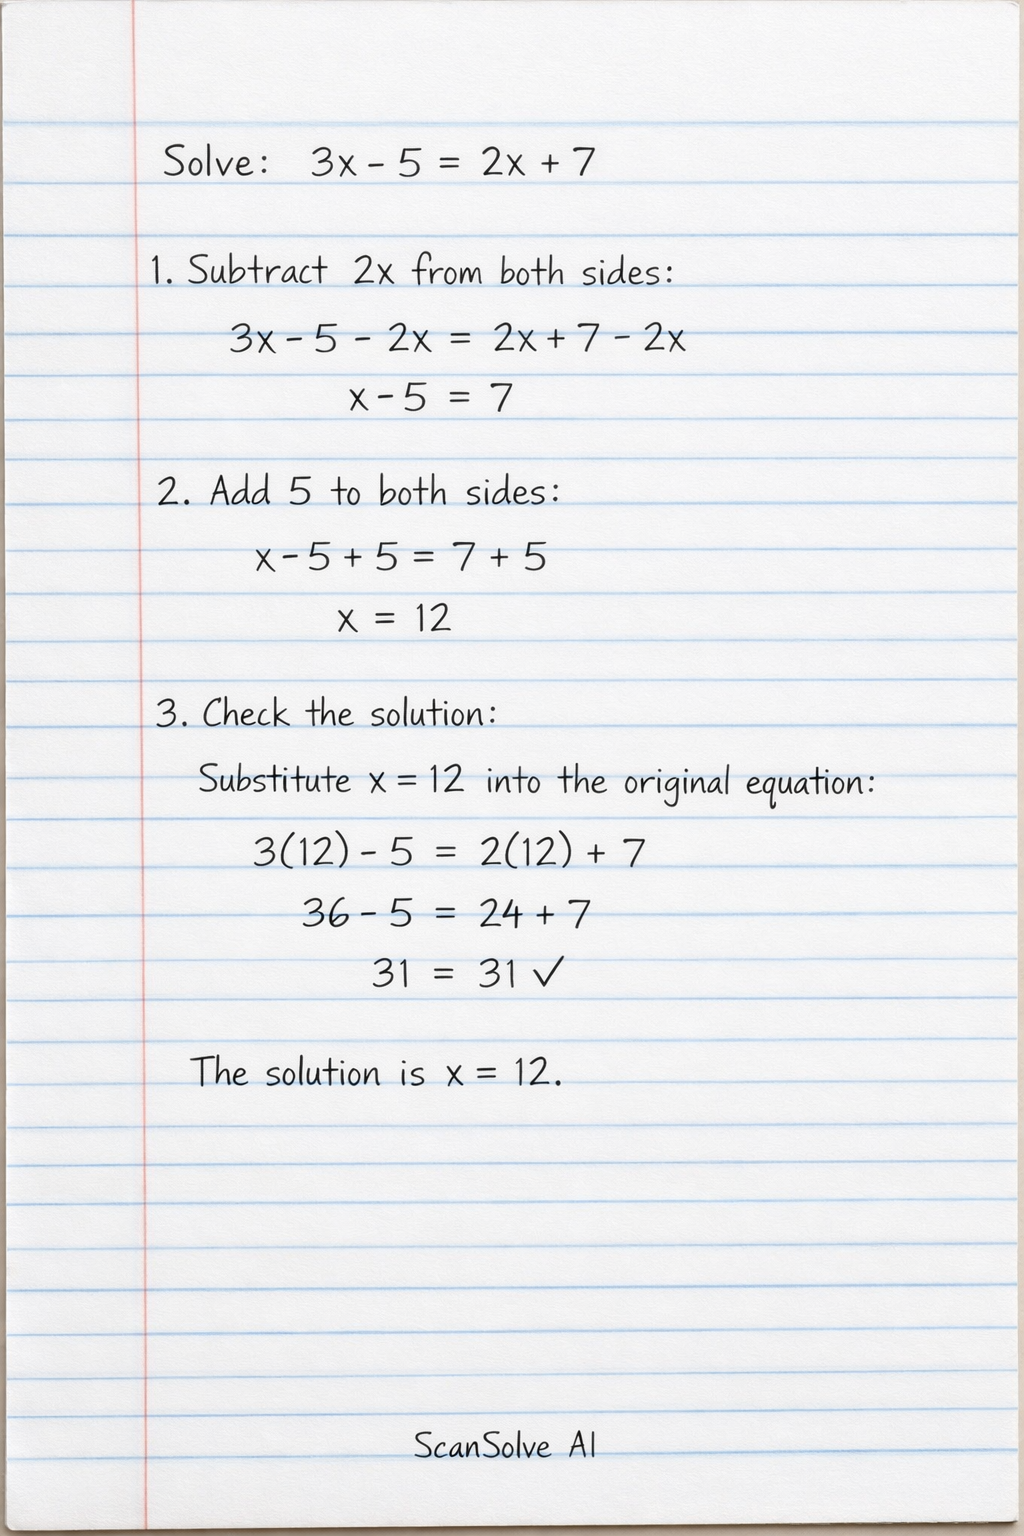 Solve: 3x - 5 = 2x + 7
1. Subtract 2x from both sides:
3x - 5 - 2x = 2x + 7 - 2x
x - 5 = 7
2. Add 5 to both sides:
x - 5 + 5 = 7 + 5
x = 12
3. Check the solution:
Substitute x = 12 into the original equation:
3(12) - 5 = 2(12) + 7
36 - 5 = 24 + 7
31 = 31 ✓
The solution is x = 12.
ScanSolve AI